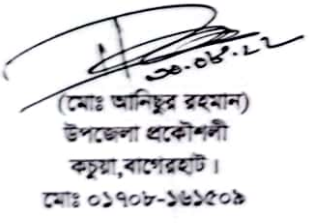 ৩০.০৮.২২
(মোঃ আনিছুর রহমান)
উপজেলা প্রকৌশলী
কচুয়া,বাগেরহাট ।
মোঃ ০১৭০৮-১৬১৫০৯